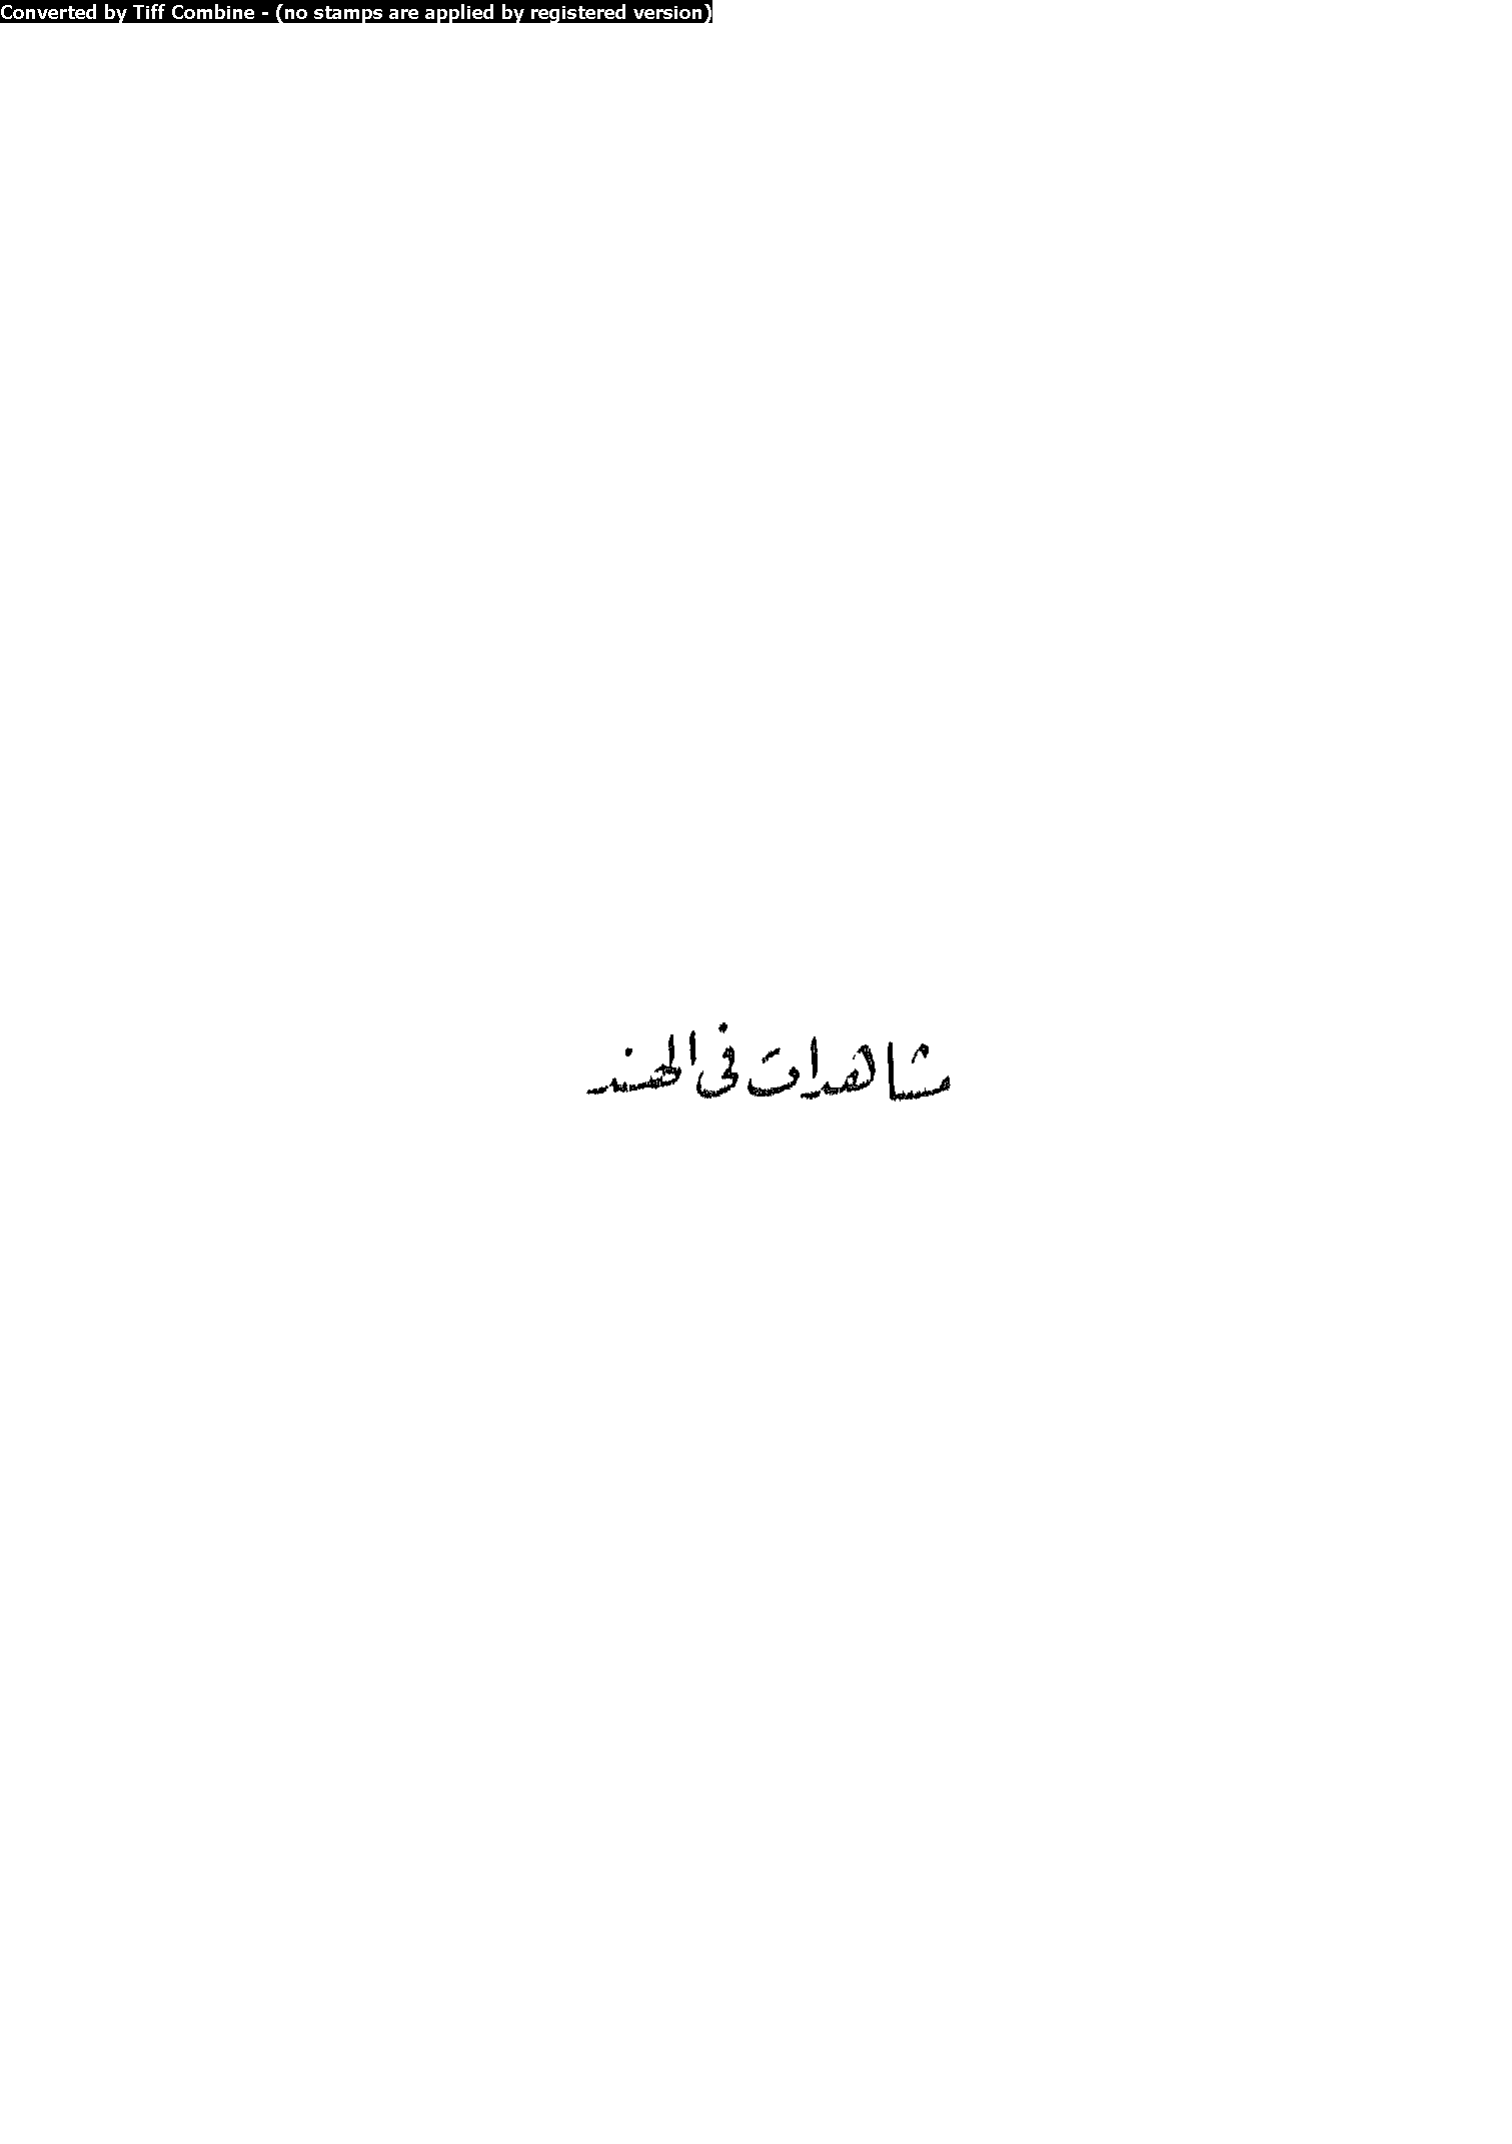 Converted by Tiff Combine - (no stamps are applied by registered version)
مشاهدات فى الهند